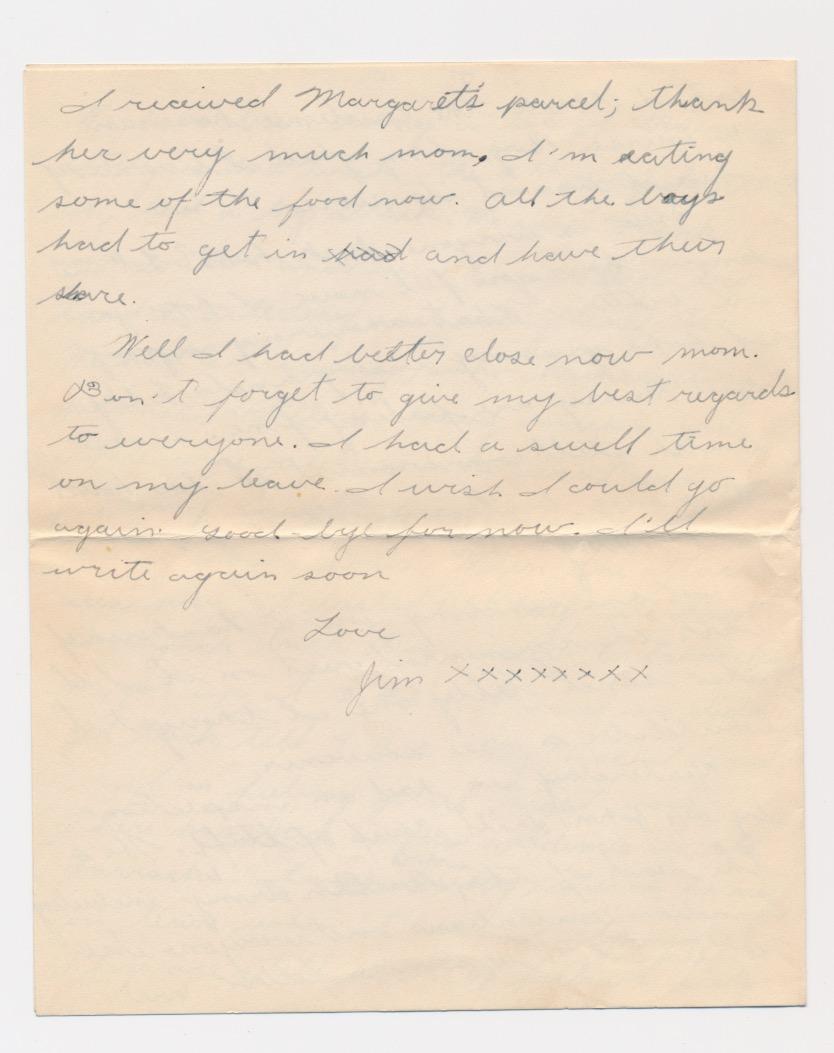 I received Margaret's parcel; thank
her very much mom. I'm eating
some of the food now. All the boys
had to get in had and have their
share.
Well I had better close now mom.
Don't forget to give my best regards
to everyone. I had a swell time
on my leave. I wish I could go
again. Good-bye for now. I'll
write again soon
Love
Jim xxxxxxxx